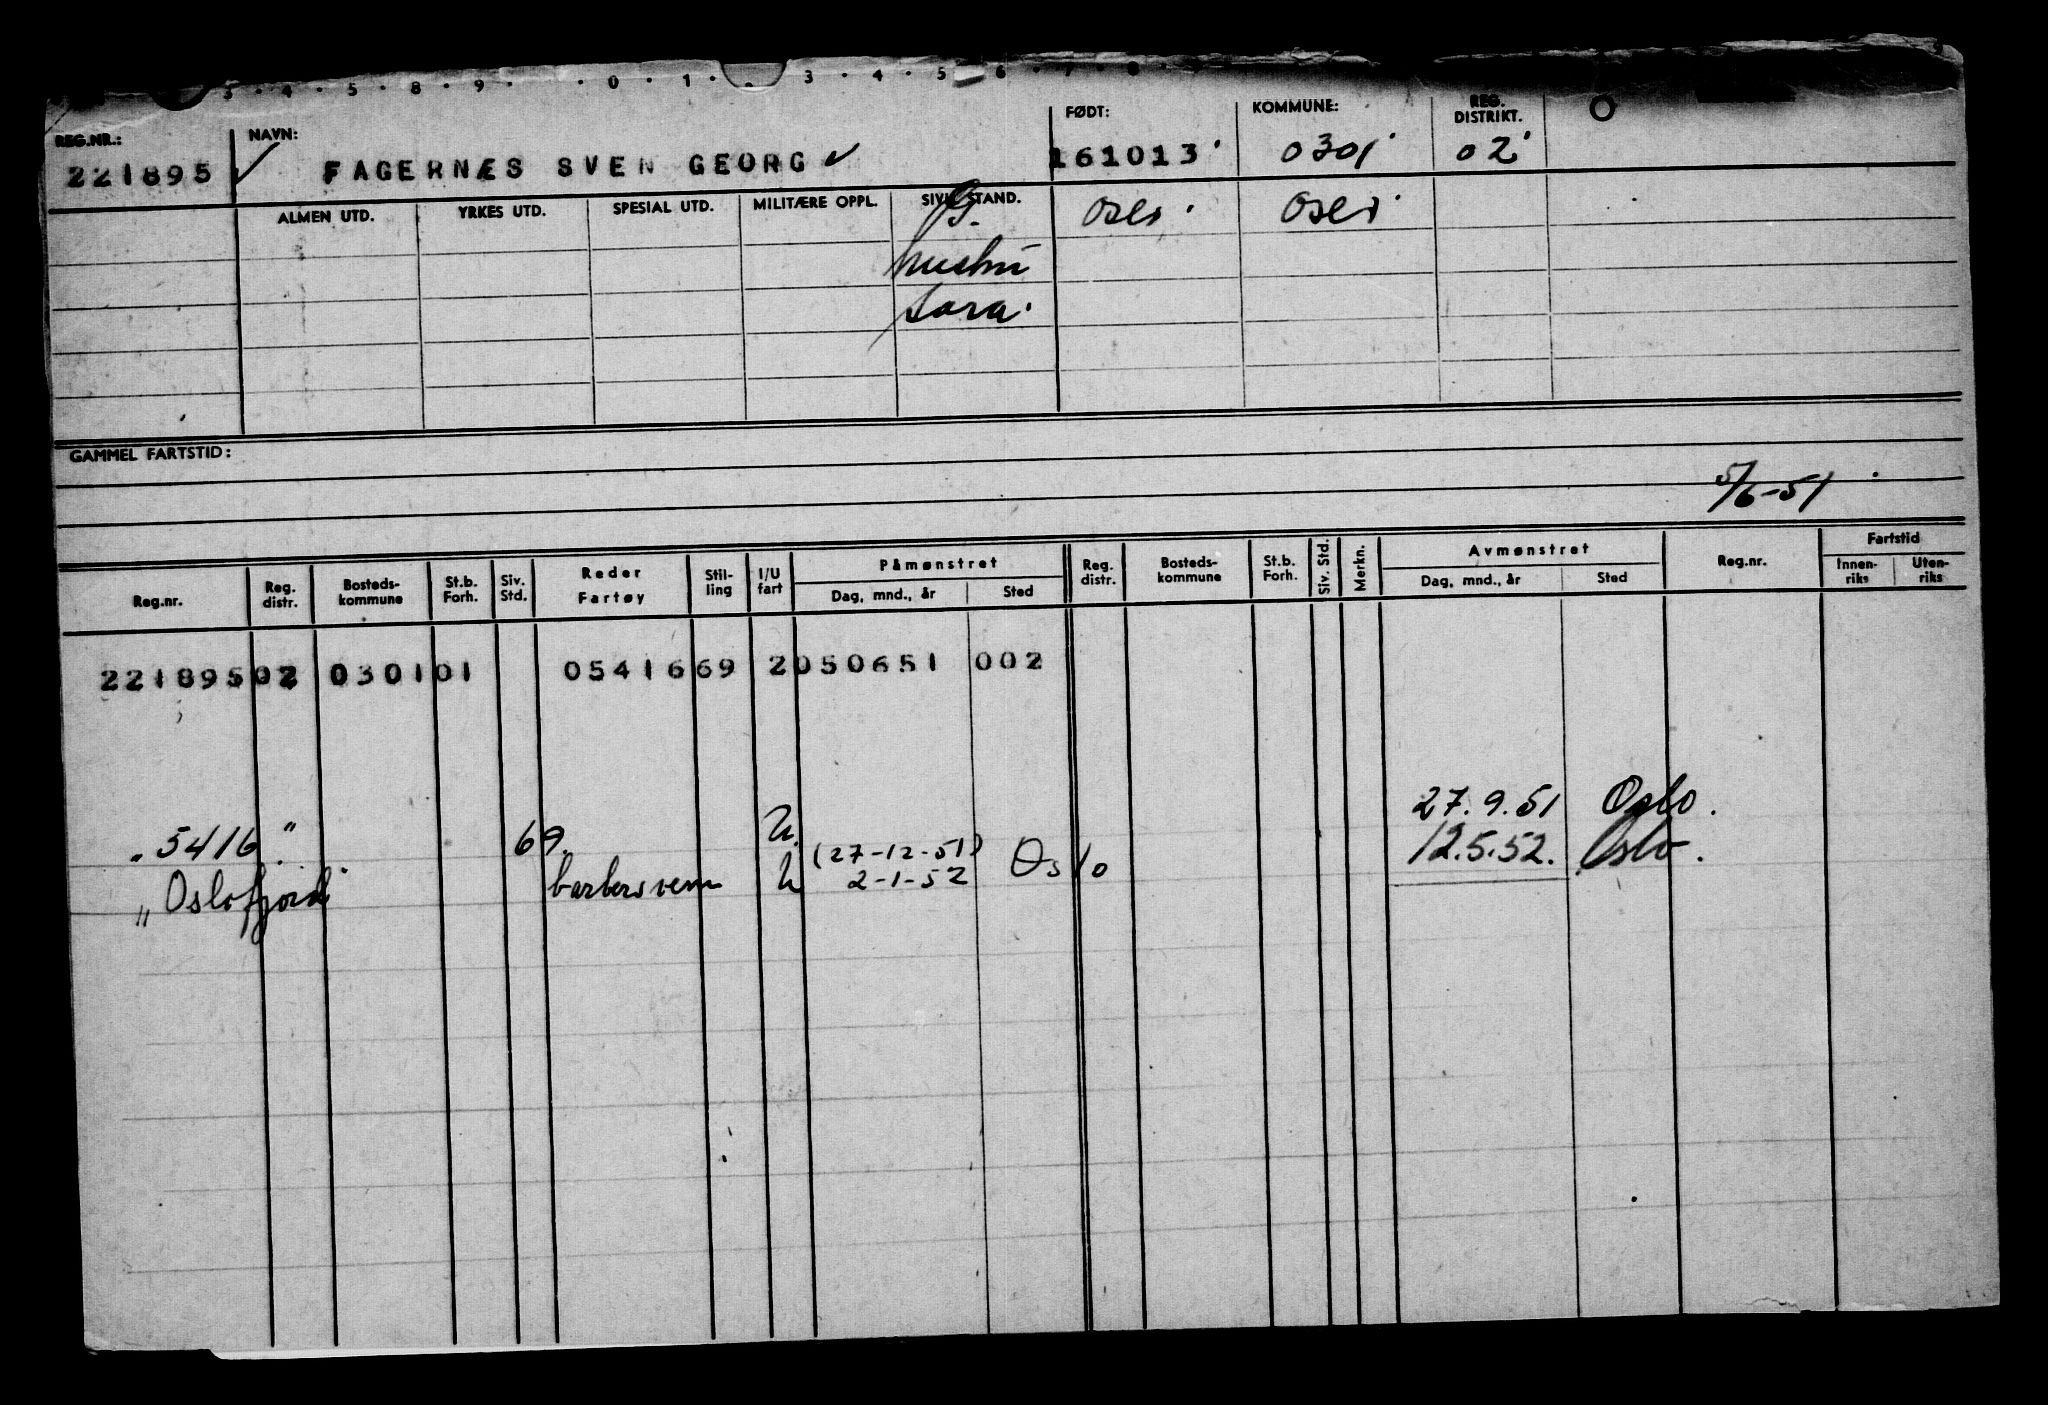 3 · 4 · 5 · 8 · 9 · 0 · 1 · 3 · 4 · 5 · 6 · 7 · 8 ·
REG.NR.: NAVN: FØDT: KOMMUNE: REG. DISTRIKT.
221895 ✓ FAGERNÆS SVEN GEORG ✓ 161013 0301 02
ALMEN UTD. YRKES UTD. SPESIAL UTD. MILITÆRE OPPL. SIVILSTAND.
g. Oslo Oslo
hustru
Sara
GAMMEL FARTSTID:
5/6-51
Reg.nr. Reg. distr. Bosteds-kommune St.b. Forh. Siv. Std. Reder Fartøy Stil-ling I/U fart Påmønstret Dag, mnd., år Sted Reg. distr. Bosteds-kommune St.b. Forh. Siv. Std. Merkn. Avmønstret Dag, mnd., år Sted Reg.nr. Fartstid Innen-riks Uten-riks
22189502 030101 0541669 2050651 002
27.9.51 Oslo.
" 5416 " 69. U. (27-12-51) Oslo 12.5.52. Oslo.
" Oslofjord barbersvenn U 2-1-52